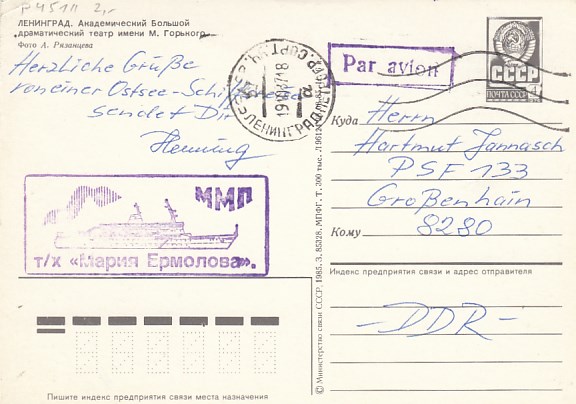 P4511 2,-
ЛЕНИНГРАД. Академический Большой
драматический театр имени М. Горького
Фото А. Рязанцева
Herzliche Grüße
von einer Ostsee-Schiffsreise
sendet Dir
Henning
ММП
т/х «Мария Ермолова».
ЛЕНИНГРАД
Par avion
СССР
ПОЧТА СССР
4
Куда
Herrn
Hartmut Jannasch
PSF 133
Großenhain
8280
Кому
Индекс предприятия связи и адрес отправителя
-DDR-
© Министерство связи СССР, 1985. З. 85328. МПФГ. Т. 300 тыс.
Пишите индекс предприятия связи места назначения